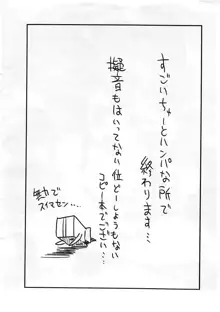 すごいちゅーとハンパな所で
終わります…
擬音もはいってない位どーしようもない
コピー本でござい…
無力で
スイマセン…